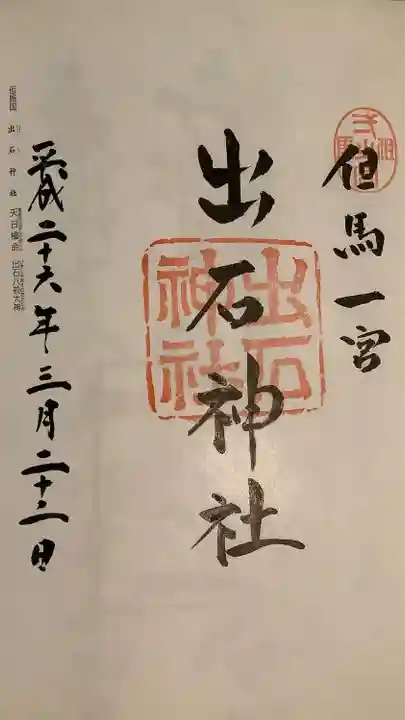 但馬一宮
出石神社
出石神社
平成二十六年三月二十二日
但馬国 出石神社 天日槍命 出石八前大神